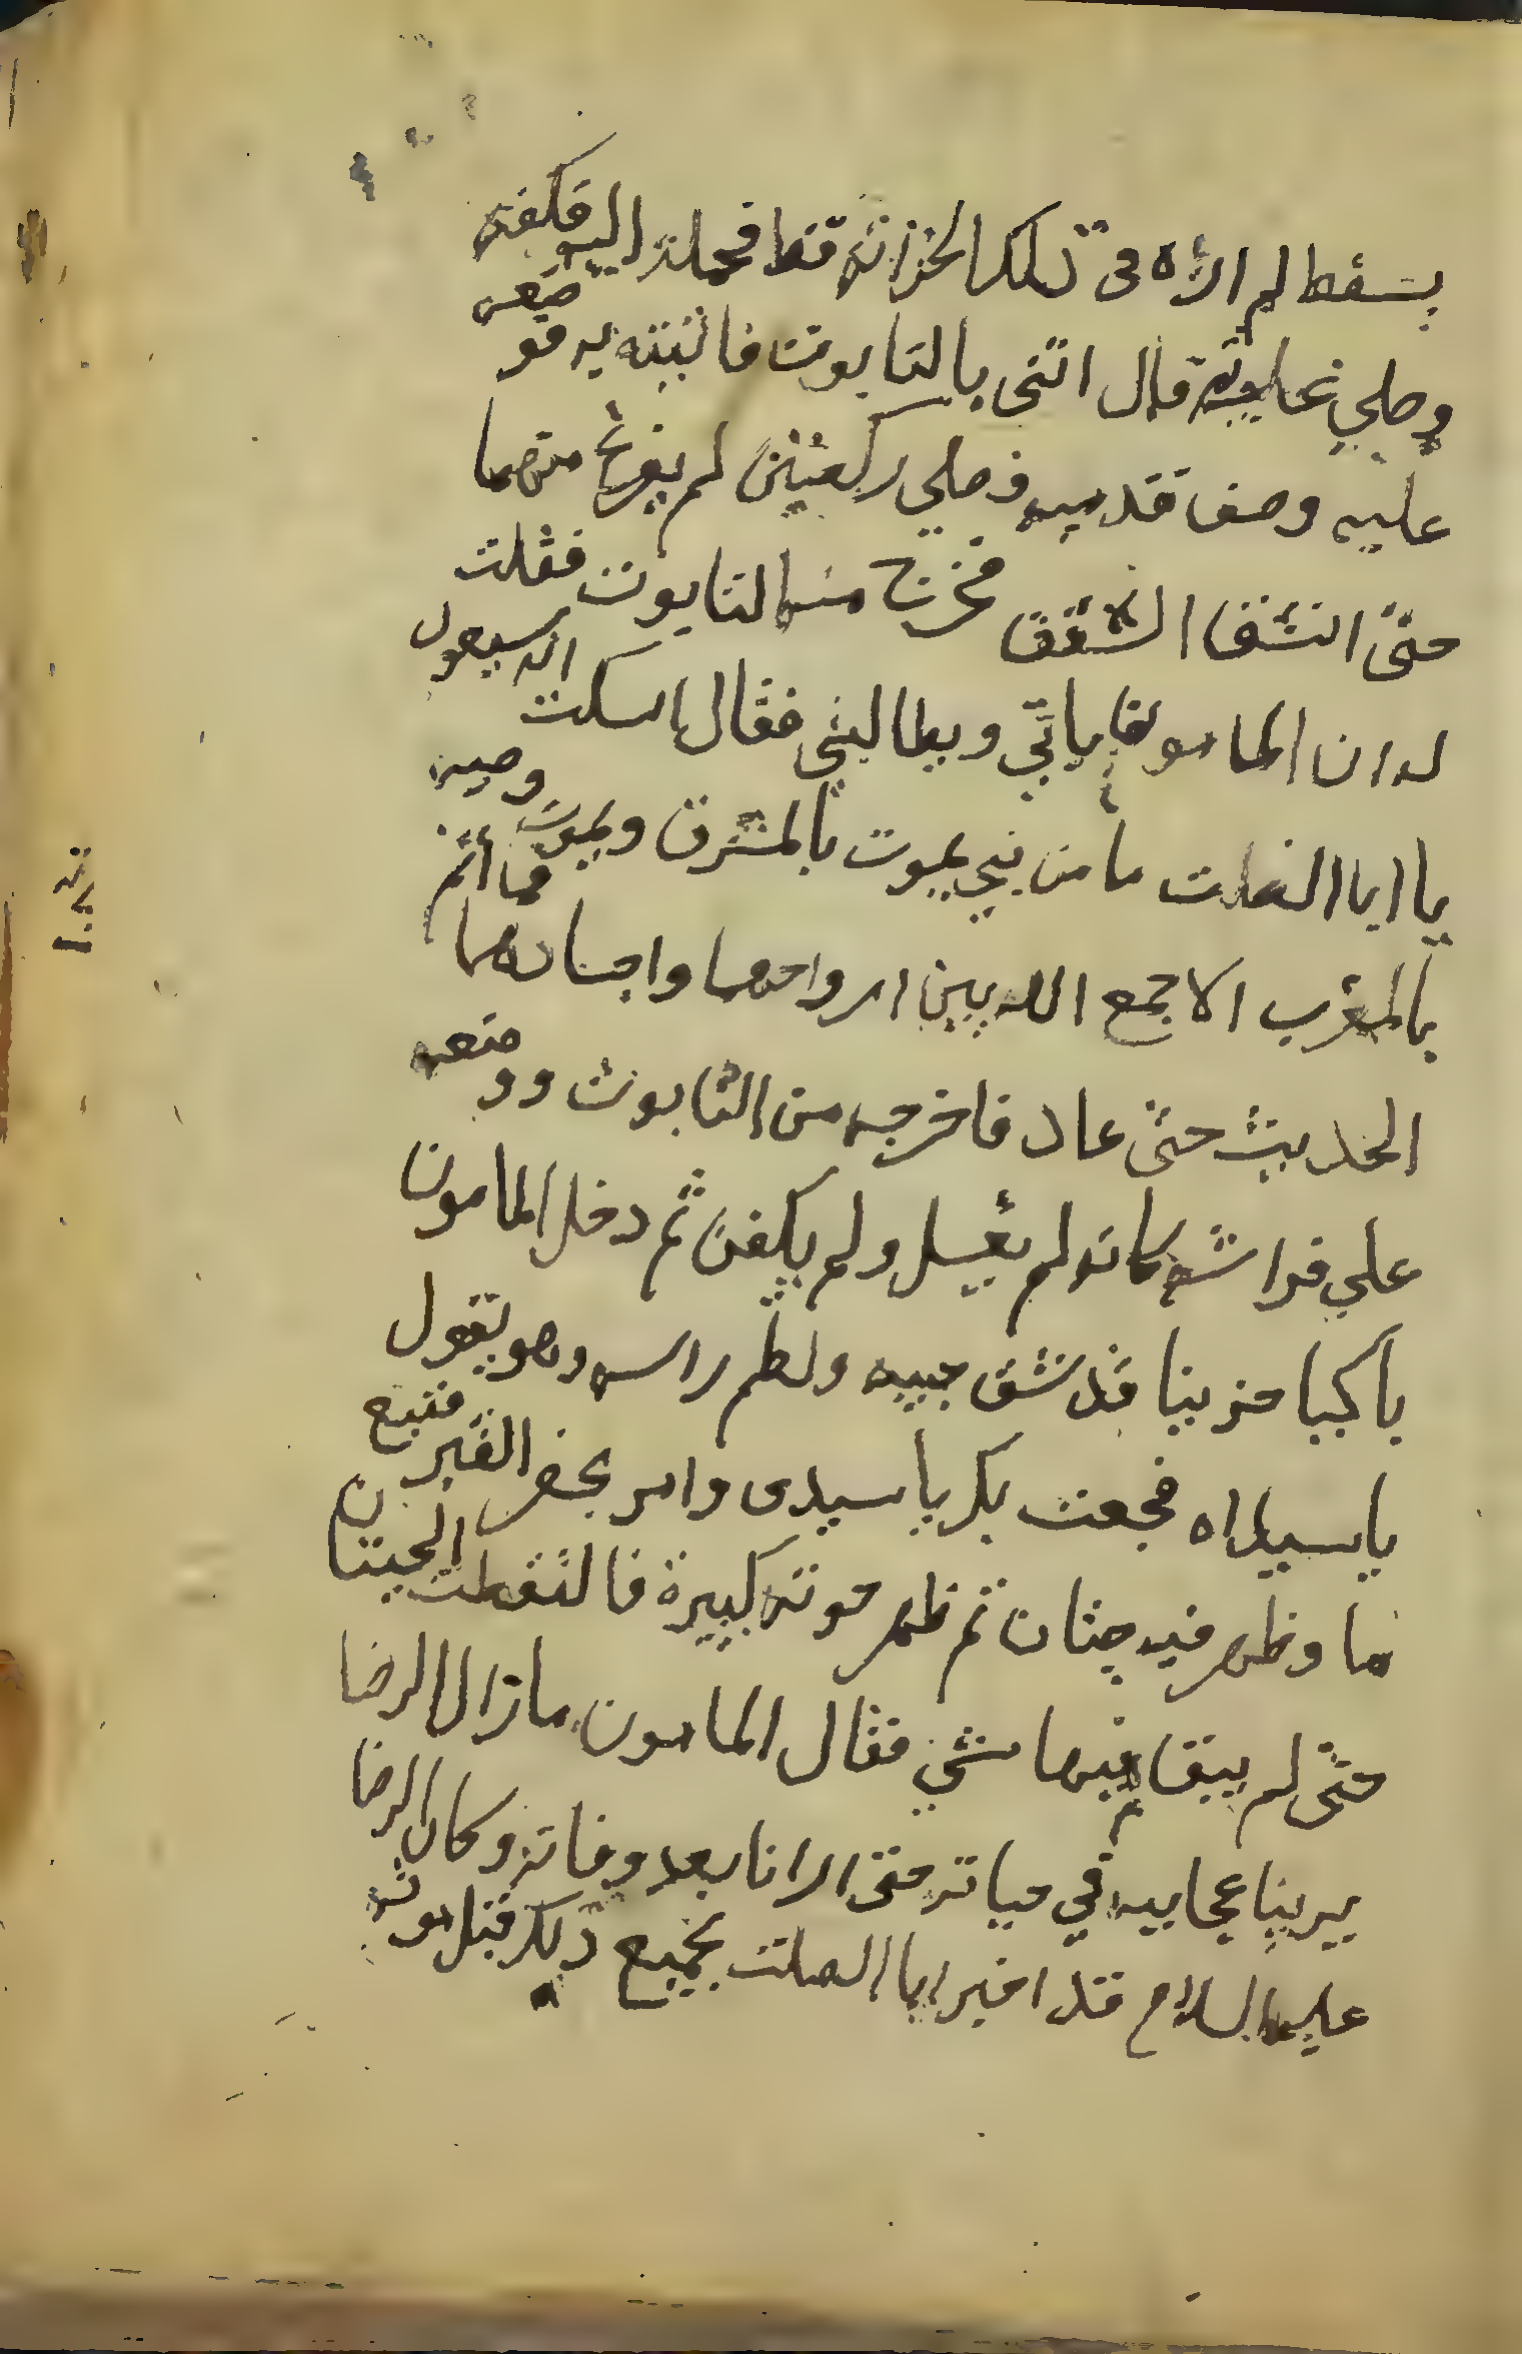 بسفط لم اراه فى تلك الخزانة قط فحملته اليه فكفنه
وصلي عليه ثم قال ائتنى بالتابوت فاتيته به فوضعه
عليه وصف قدميه وصلي ركعتين لم يفرغ منهما
حتى انشق السقف فخرج منه التابوت فقلت
له ان المامون ياتي ويطالبني فقال اسكت انه سيعود
يا ابا الصلت ما من نبي يموت بالمشرق ويموت وصيه
بالمغرب الا جمع الله بين ارواحهما واجسادهما فما اتم
الحديث حتى عاد فاخرجه من التابوت ووضعه
على فراشه كانه لم يغسل ولم يكفن ثم دخل المامون
باكيا حزينا قد شق جيبه ولطم راسه وهو يقول
يا سيداه فجعت بك يا سيدى وامر بحفر القبر فنبع
ما وظهر فيه حيتان ثم ظهر حوته كبيرة فالتقطت الحيتان
حتى لم يبقا فيها شي فقال المامون ما زال الرضا
يرينا عجايبه في حياته حتى ارانا بعد وفاته وكان الرضا
عليه السلام قد اخبر ابا الصلت بجميع ذلك قبل موته